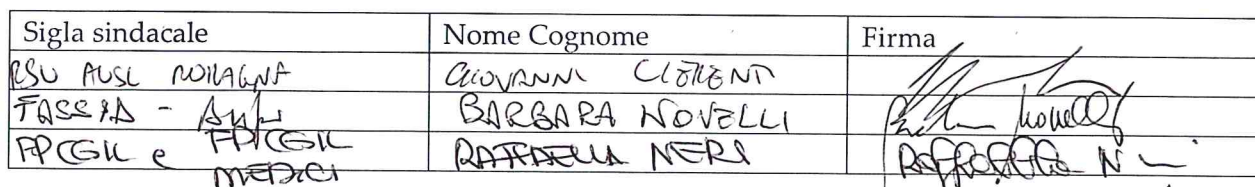 Sigla sindacale Nome Cognome Firma
RSU AUSL ROMAGNA GIOVANNI CLEMENTI
FASSID - BARBARA NOVELLI Novelli
FP CGIL e FP CGIL MEDICI RAFFAELLA NERI Raffaella N